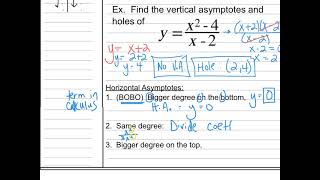 Ex. Find the vertical asymptotes and
holes of
y = x² - 4 / x - 2
→ (x+2)(x-2)
(x-2)
x - 2 = 0
y = x+2
y = 2+2
y = 4
No VA
Hole: (2,4)
Horizontal Asymptotes:
term in
calculus
1. (BOBO) Bigger degree on the bottom, y = 0
H.A. → y = 0
2. Same degree: Divide coeff
3. Bigger degree on the top,